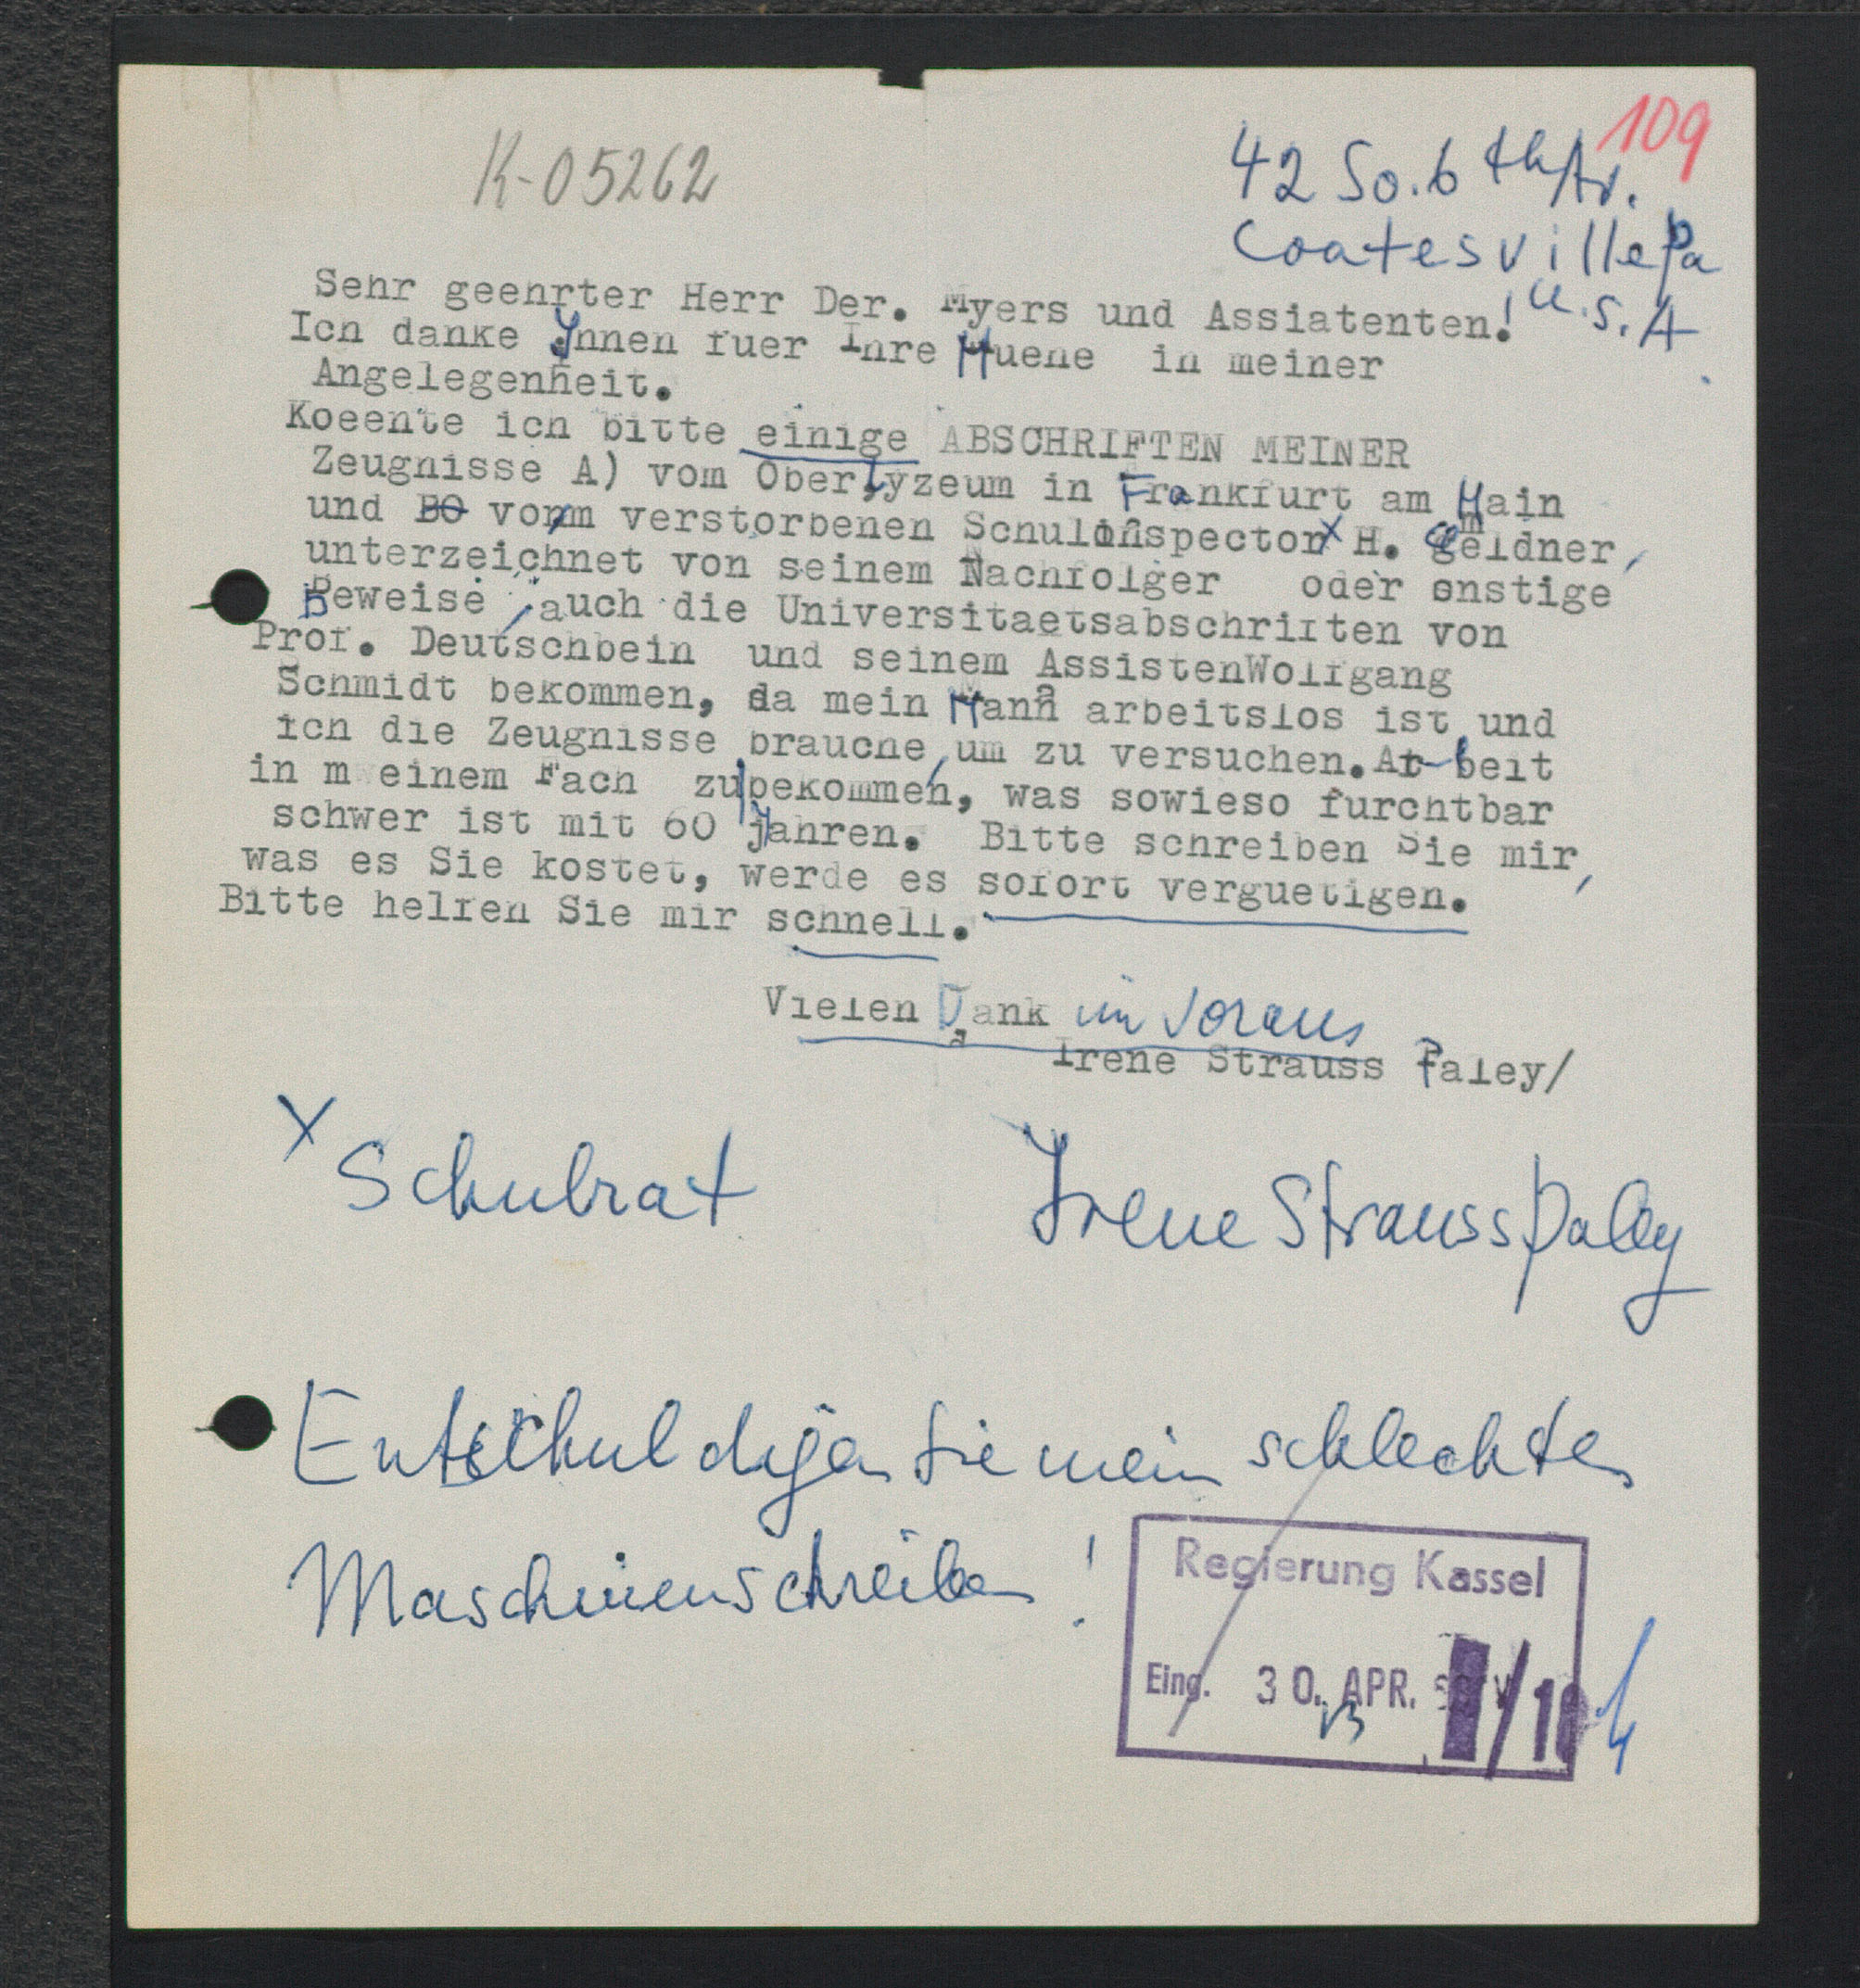 109
K-05262
42 So. 6 th Av.
Coatesville Pa
U.S.A
Sehr geehrter Herr Der. Myers und Assiatenten!
Ich danke Ihnen fuer Ihre Muehe in meiner
Angelegenheit.
Koeente ich bitte einige ABSCHRIFTEN MEINER
Zeugnisse A) vom Oberlyzeum in Frankfurt am Main
und BO vom verstorbenen Schulinspector x H. Geldner,
unterzeichnet von seinem Nachfolger oder onstige
Beweise, auch die Universitaetsabschriften von
Prof. Deutschbein und seinem AssistenWolfgang
Schmidt bekommen, da mein Mann arbeitslos ist und
ich die Zeugnisse brauche, um zu versuchen. Ar-beit
in m einem Fach zu bekommen, was sowieso furchtbar
schwer ist mit 60 Jahren. Bitte schreiben Sie mir,
was es Sie kostet, werde es sofort verguetigen.
Bitte helfen Sie mir schnell.
Vielen Dank im Voraus
Irene Strauss Paley/
x Schulrat
Irene Strauss Paley
Entschuldigen Sie mein schlechtes
Maschinenschreiben!
Regierung Kassel
Eing. 30. APR.